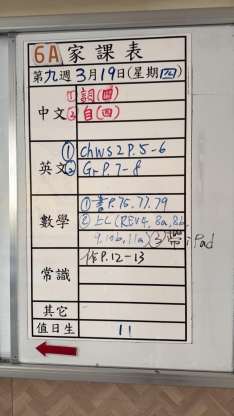 6A 家課表
第九週3月19日(星期四)
中文 ①詞(四)
②自(四)
英文 ①Chws2 P.5-6
②Gr P.7-8
數學 ①書P.76,77,79
②上C(REV4, 8a, 8b,
9, 10b, 11a) ③ iPad
常識 作P.12-13
其它
值日生 11